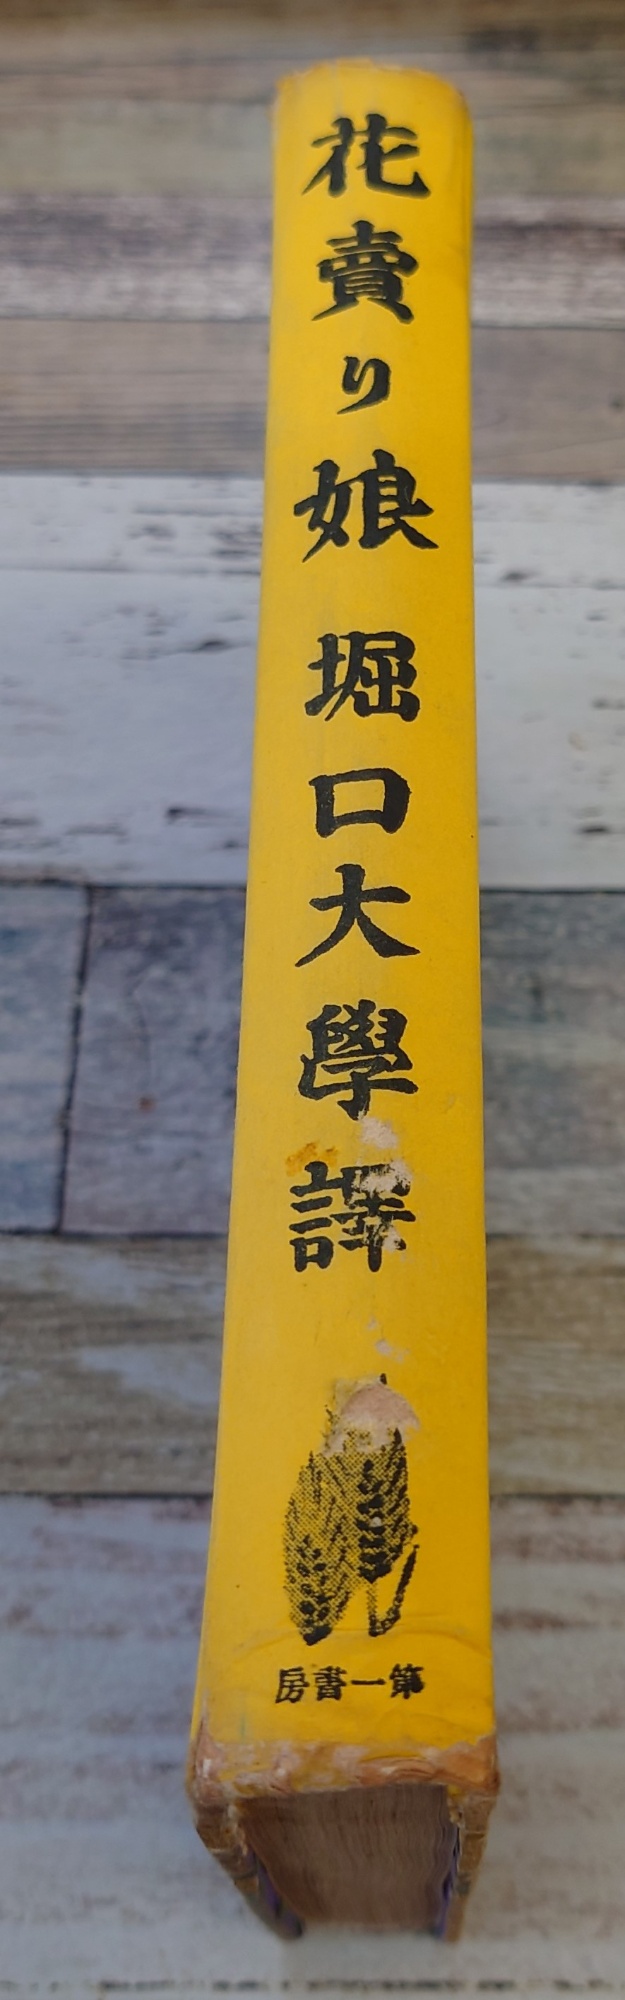 花賣り娘 堀口大學譯
房書一第